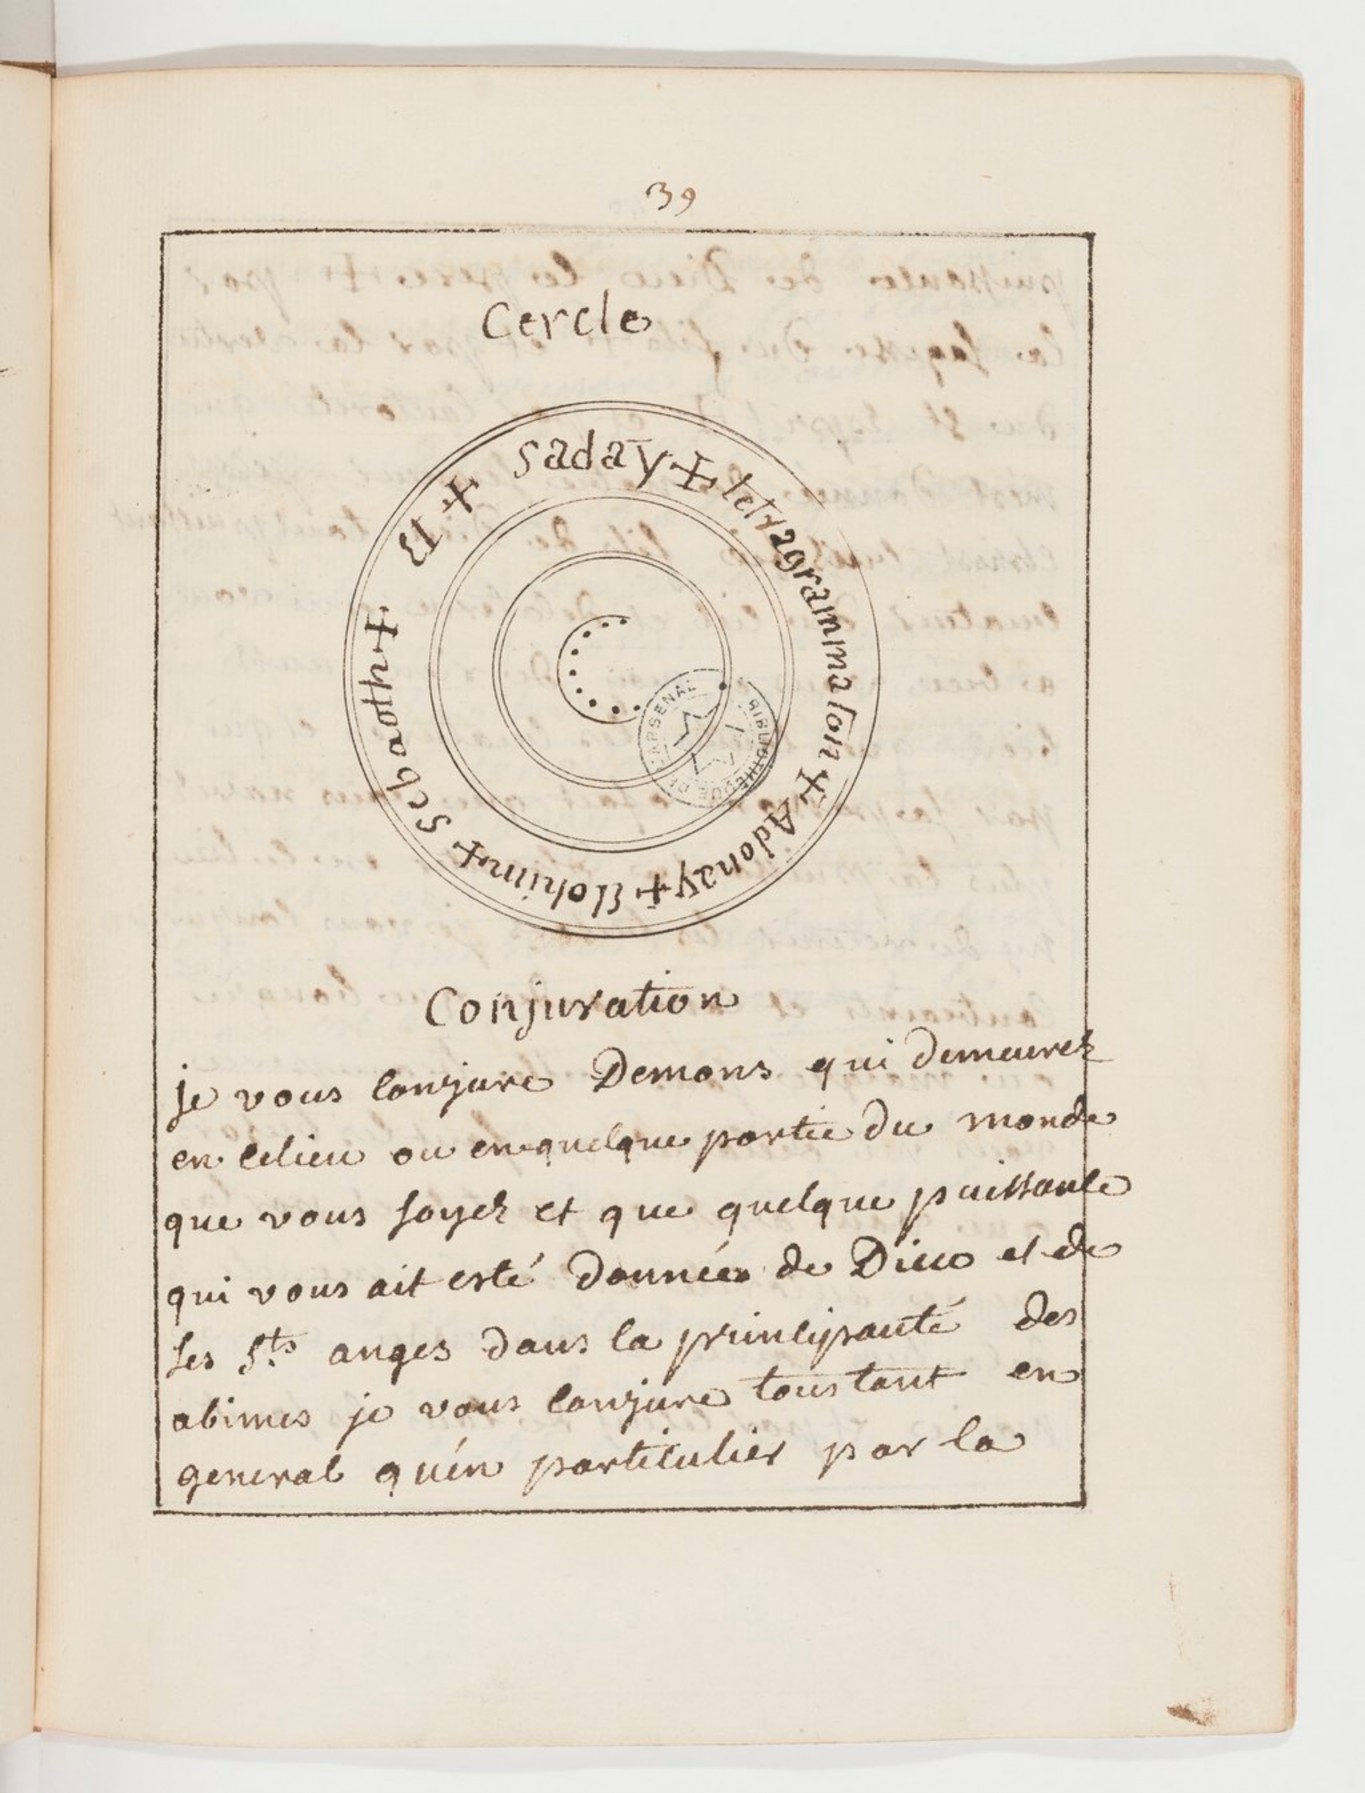 39
Cercle
El + Saday + tetragrammaton + Adonay + Elohim + Sebaoth +
BIBLIOTHEQUE DE L'ARSENAL
Conjuration
je vous conjure Demons qui demeurez
en celieu ou enquelque partie du monde
que vous soyez et que quelque puissance
qui vous ait esté donnée de Dieu et de
ses Sts anges dans la principauté des
abimes je vous conjure tous tant en
general quén particulier par la